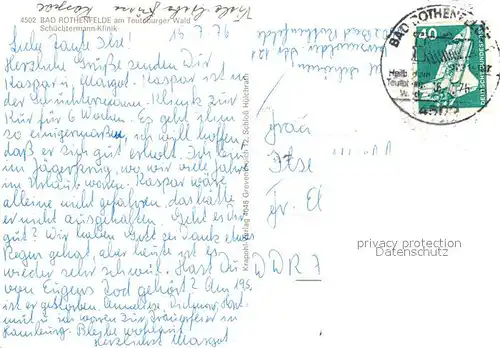 4502 BAD ROTHENFELDE am Teutoburger Wald
Schüchtermann-Klinik
Viele liebe Grüße
Kaspar
15.7.76
Liebe Tante Ilse!
Herzliche Grüße senden Dir
Kaspar u. Margot. Kaspar ist in
der Schüchtermann-Klinik zur
Kur für 6 Wochen. Es geht ihm
so einigermaßen, ich will hoffen,
daß er sich gut erholt. Ich bin
im Jägerkrug, wo wir viele Jahre
im Urlaub waren. Kaspar wäre
alleine nicht gefahren, das hätte
er nicht ausgehalten. Geht es Dir
gut? Wir haben Gott sei Dank etwas
Regen gehabt, aber heute ist es
wieder sehr schwül. Hast Du
von Eugens Tod gehört? Am 19.5.
ist er gestorben. Annelise,
mut u. ich waren zur Trauerfeier in
Hamburg. Bleibe wohlauf
Herzlichst Margot
Krapohl-Verlag 4048 Grevenbroich 12, Schloß Hülchrath
BAD ROTHENFELDE
Heilb
Teutob
W
4502
40
DEUTSCHE BUNDESPOST
Frau
Ilse
Gr. El
DDR 7
privacy protection
Datenschutz